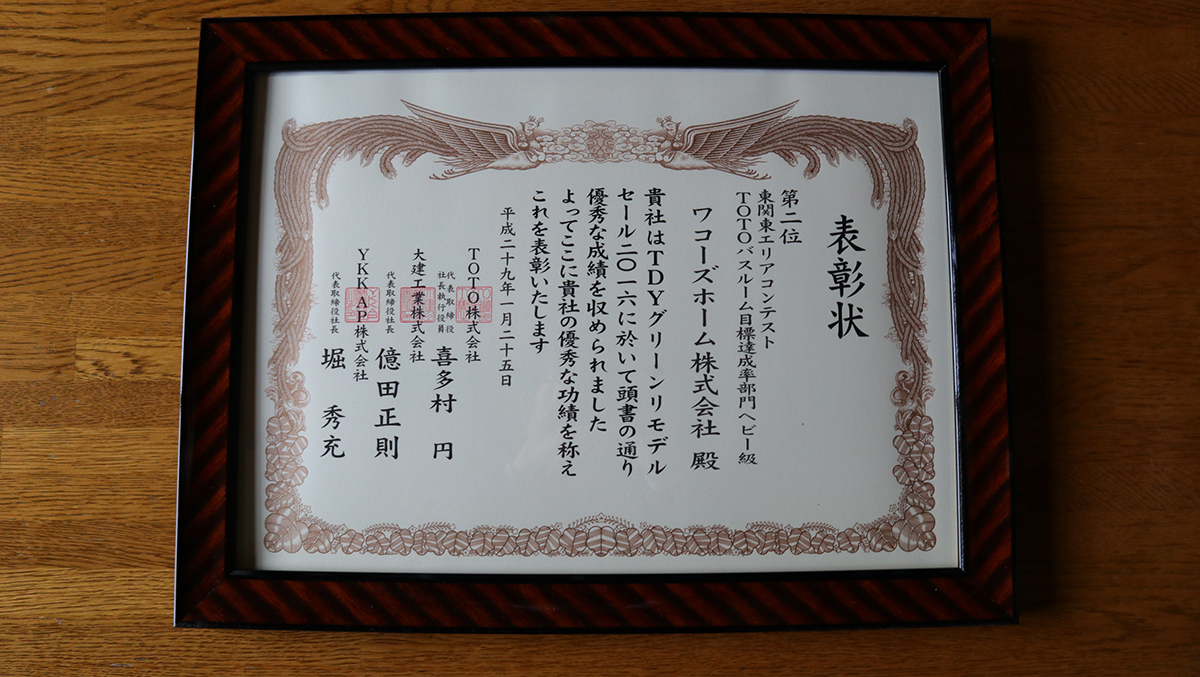 表彰状
第二位
東関東エリアコンテスト
TOTOバスルーム目標達成率部門ヘビー級
ワコーズホーム株式会社 殿
貴社はTDYグリーンリモデル
セール二〇一六に於いて頭書の通り
優秀な成績を収められました
よってここに貴社の優秀な功績を称え
これを表彰いたします
平成二十九年一月二十五日
TOTO株式会社
代表取締役
社長執行役員
喜多村 円
大建工業株式会社
代表取締役社長
億田正則
YKK AP株式会社
代表取締役社長
堀 秀充